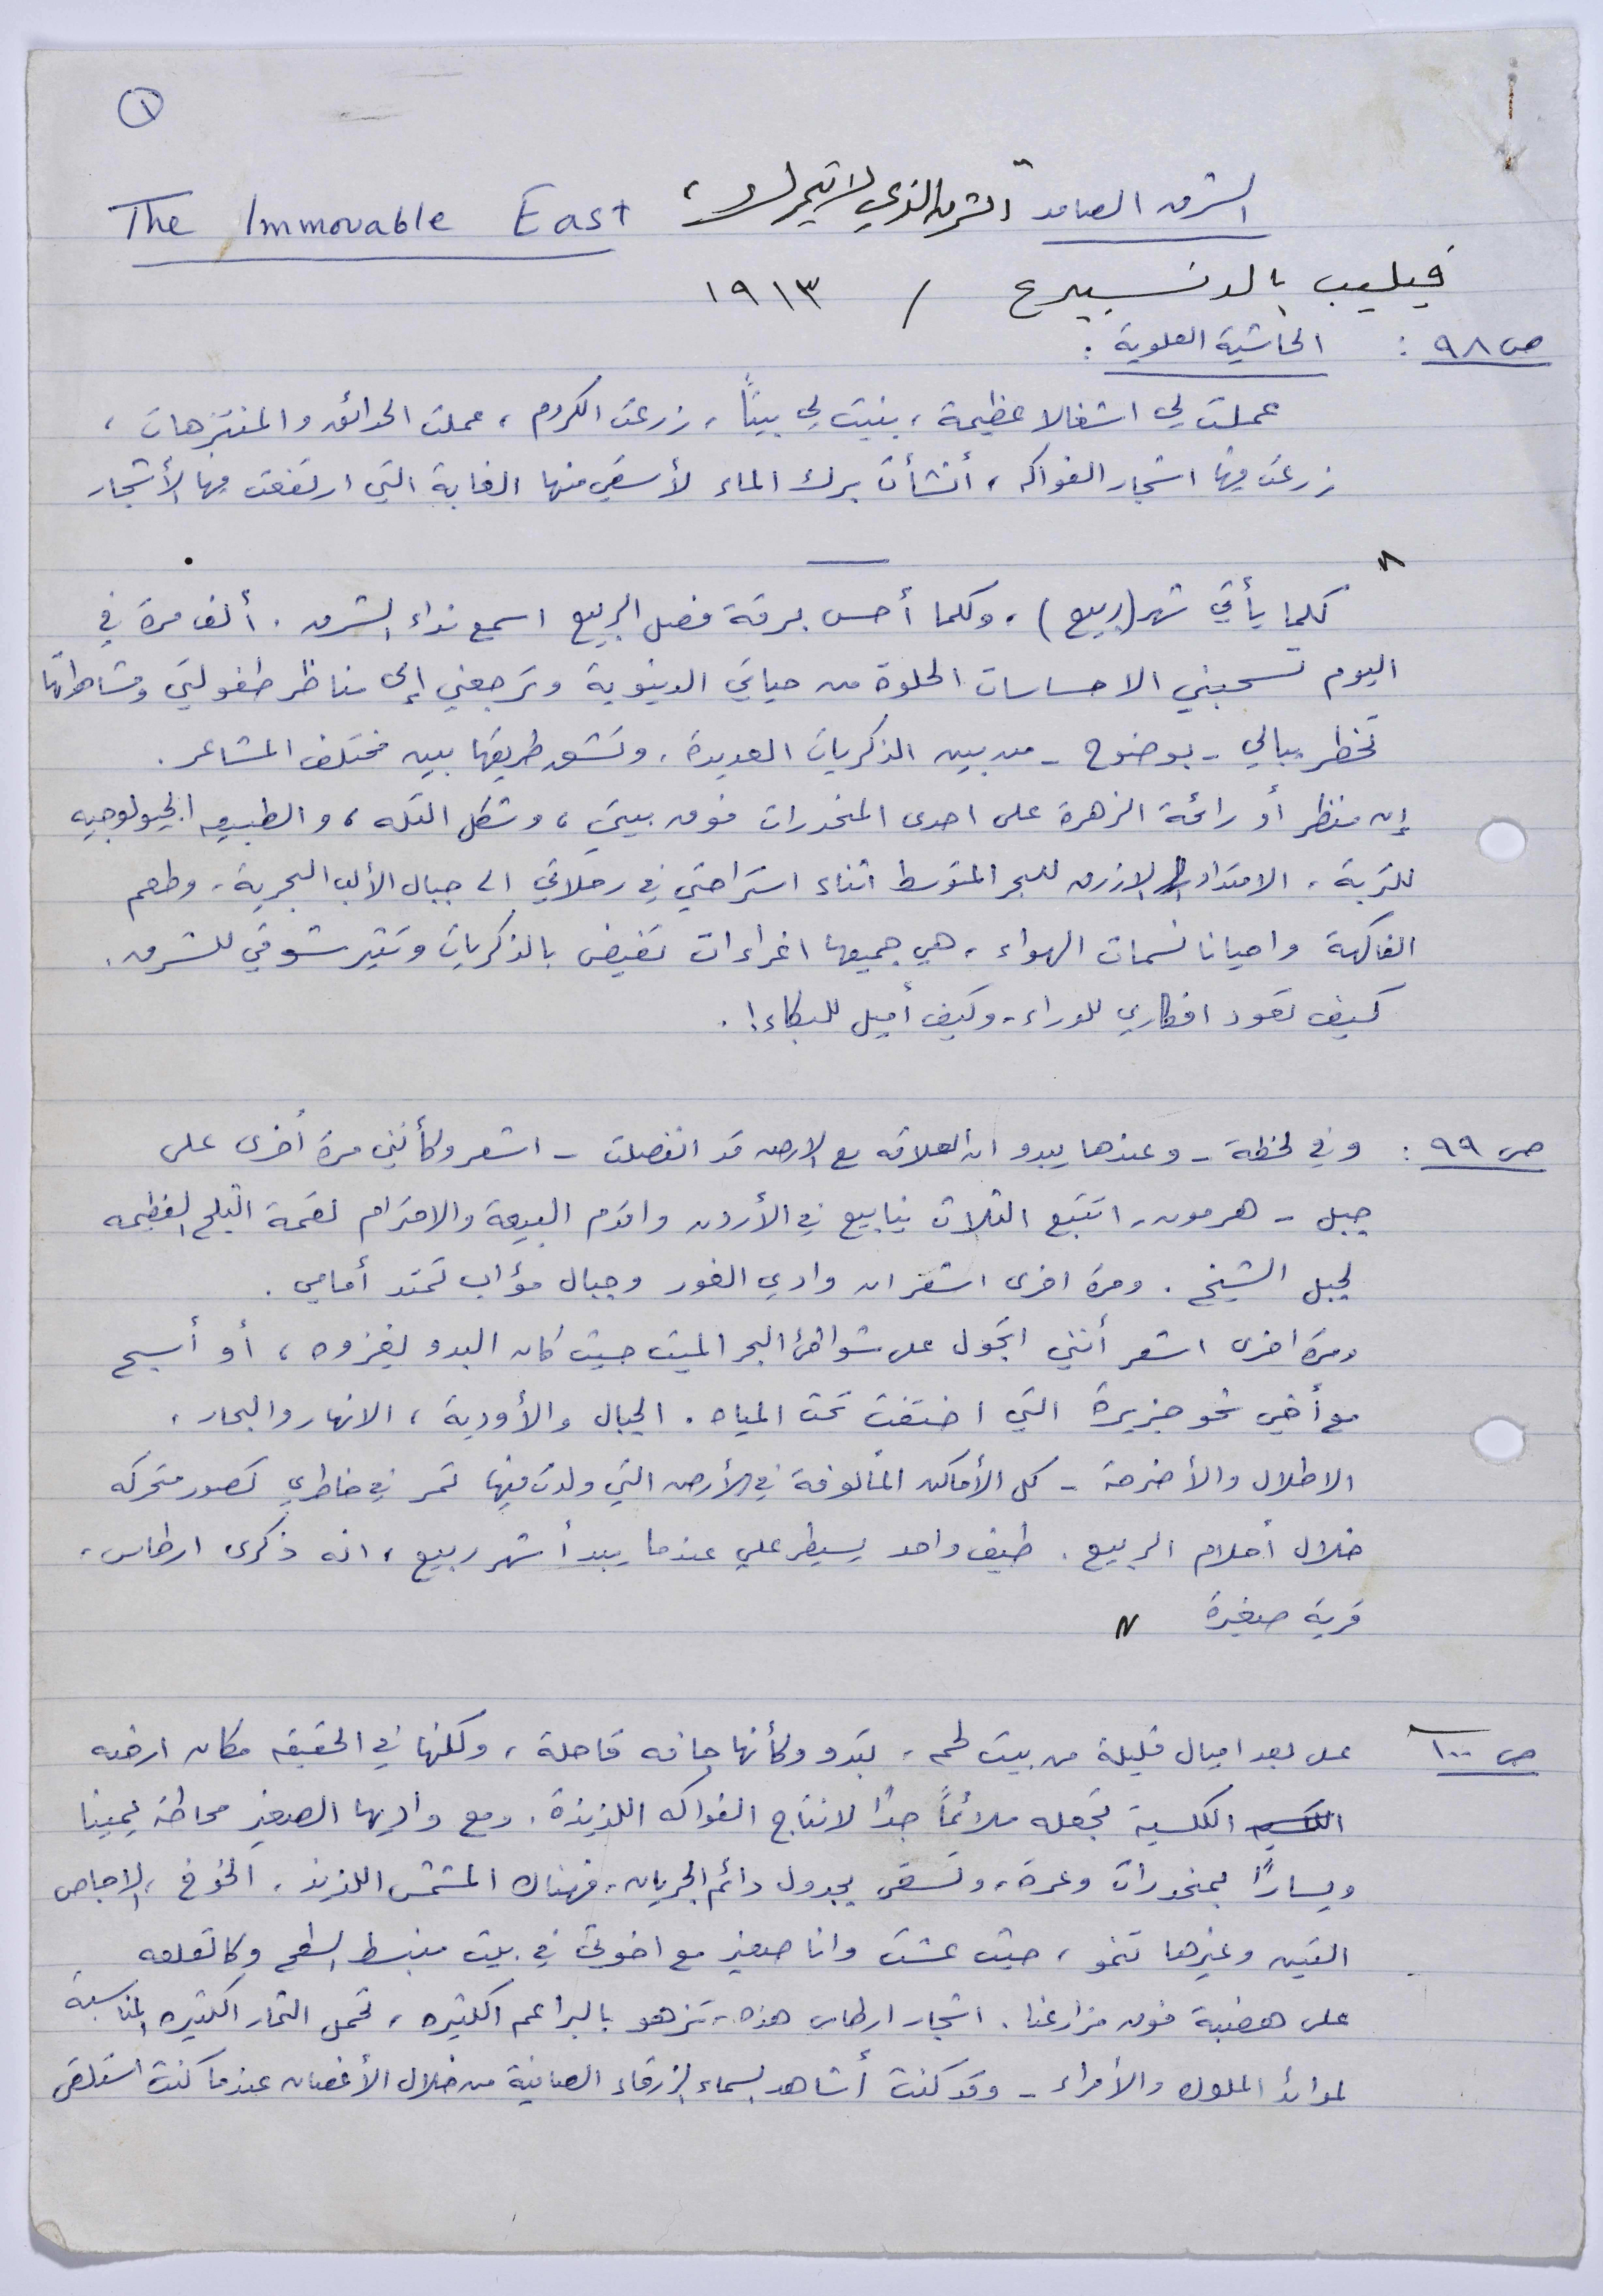 ١
الشرق الصامد "الشرق الذي لا يتحرك" The Immovable East
فيليب بالدنسبيرغ / ١٩١٣
ص ٩٨ : الحاشية العلوية :
عملت لي اشغالا عظيمة ، بنيت لي بيتاً ، زرعت الكروم ، عملت الحدائق والمنتزهات ،
زرعت فيها اشجار الفواكه ، أنشأت برك الماء لأسقي منها الغابة التي ارتفعت فيها الأشجار
كلما يأتي شهر (ربيع) ، وكلما أحس برقة فصل الربيع اسمع نداء الشرق . ألف مرة في
اليوم تسحبني الاحساسات الحلوة من حياتي الدنيوية وترجعني إلى مناظر طفولتي ومشاهداتها
تخطر ببالي - بوضوح - من بين الذكريات العديدة . وتشق طريقها بين مختلف المشاعر .
إن منظر أو رائحة الزهرة على احدى المنحدرات فوق بيتي ، وشكل التله ، والطبيعه الجيولوجيه
للتربة ، الامتداد الازرق للبحر المتوسط اثناء استراحتي في رحلاتي الى جبال الألب البحرية ، وطعم
الفاكهة واحيانا نسمات الهواء ، هي جميعها اغراءات تفيض بالذكريات وتثير شوقي للشرق .
كيف تعود افكاري للوراء - وكيف أميل للبكاء ! .
ص ٩٩ : وفي لحظة - وعندها يبدو ان العلاقه مع الارض قد انفصلت - اشعر وكأنني مرة أخرى على
جبل - هرمون ، اتتبع الثلاث ينابيع في الأردن واقدم البيعة والاحترام لقمة الثلج العظيمه
لجبل الشيخ . ومرة اخرى اشعر ان وادي الغور وجبال مؤاب تمتد أمامي .
ومرة اخرى اشعر أنني اتجول على شواطئ البحر الميت حيث كان البدو يغزوه ، أو أسبح
مع أخي نحو جزيرة التي اختفت تحت المياه . الجبال والأودية ، الانهار والبحار ،
الاطلال والأضرحة - كل الأماكن المألوفة في الأرض التي ولدت فيها تمر في خاطري كصور متحركه
خلال أحلام الربيع . طيف واحد يسيطر علي عندما يبدأ شهر ربيع ، انه ذكرى ارطاس ،
قرية صغيرة "
ص ١٠٠ على بعد اميال قليلة من بيت لحم ، تبدو وكأنها جافه قاحلة ، ولكنها في الحقيقه مكان ارضه
الكلسية تجعله ملائماً جداً لانتاج الفواكه اللذيذة . ومع واديها الصغير محاطة يمينا
ويساراً بمنحدرات وعرة ، وتسقى بجدول دائم الجريان ، فهناك المشمش اللذيذ ، الخوخ ، الاجاص
التين وغيرها تنمو ، حيث عشت وانا صغير مع اخوتي في بيت منبسط السطح وكالقلعه
على هضبة فوق مزارعنا . اشجار ارطاس هذه ، تزهو بالبراعم الكثيره ، تحمل الثمار الكثيره المناسبة
لموائد الملوك والأمراء - وقد كنت أشاهد السماء الزرقاء الصافية من خلال الأغصان عندما كنت استلقي